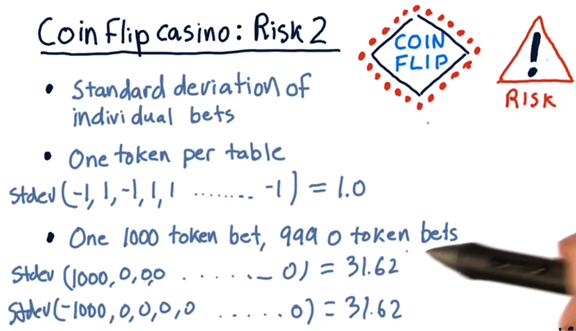 Coin Flip casino: Risk 2
COIN
FLIP
!
RISK
• Standard deviation of
individual bets
• One token per table
Stdev (-1, 1, -1, 1, 1 ........ -1) = 1.0
• One 1000 token bet, 999 0 token bets
Stdev (1000, 0, 0, 0 ...... 0) = 31.62
Stdev (-1000, 0, 0, 0, 0 ..... 0) = 31.62